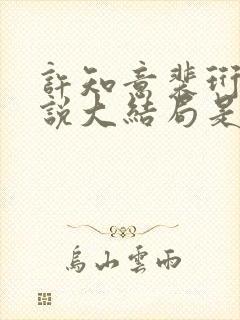 許知意裴珩
說大結局是
烏山雲雨